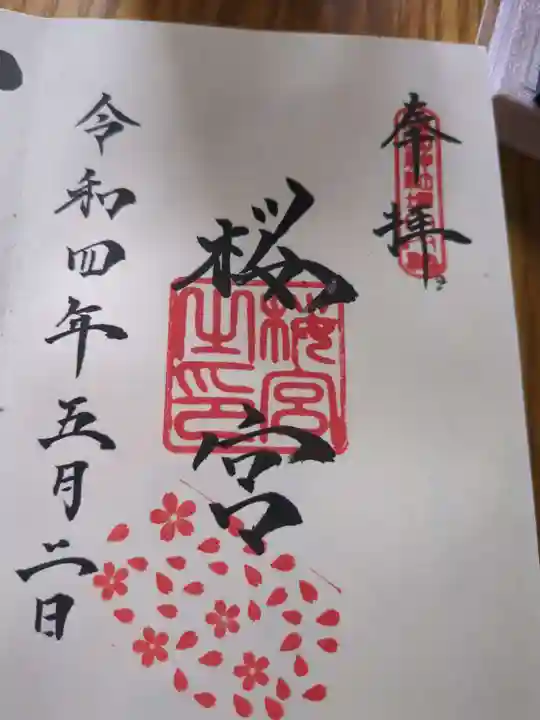 奉拝
桜宮
桜宮之印
令和四年五月二日